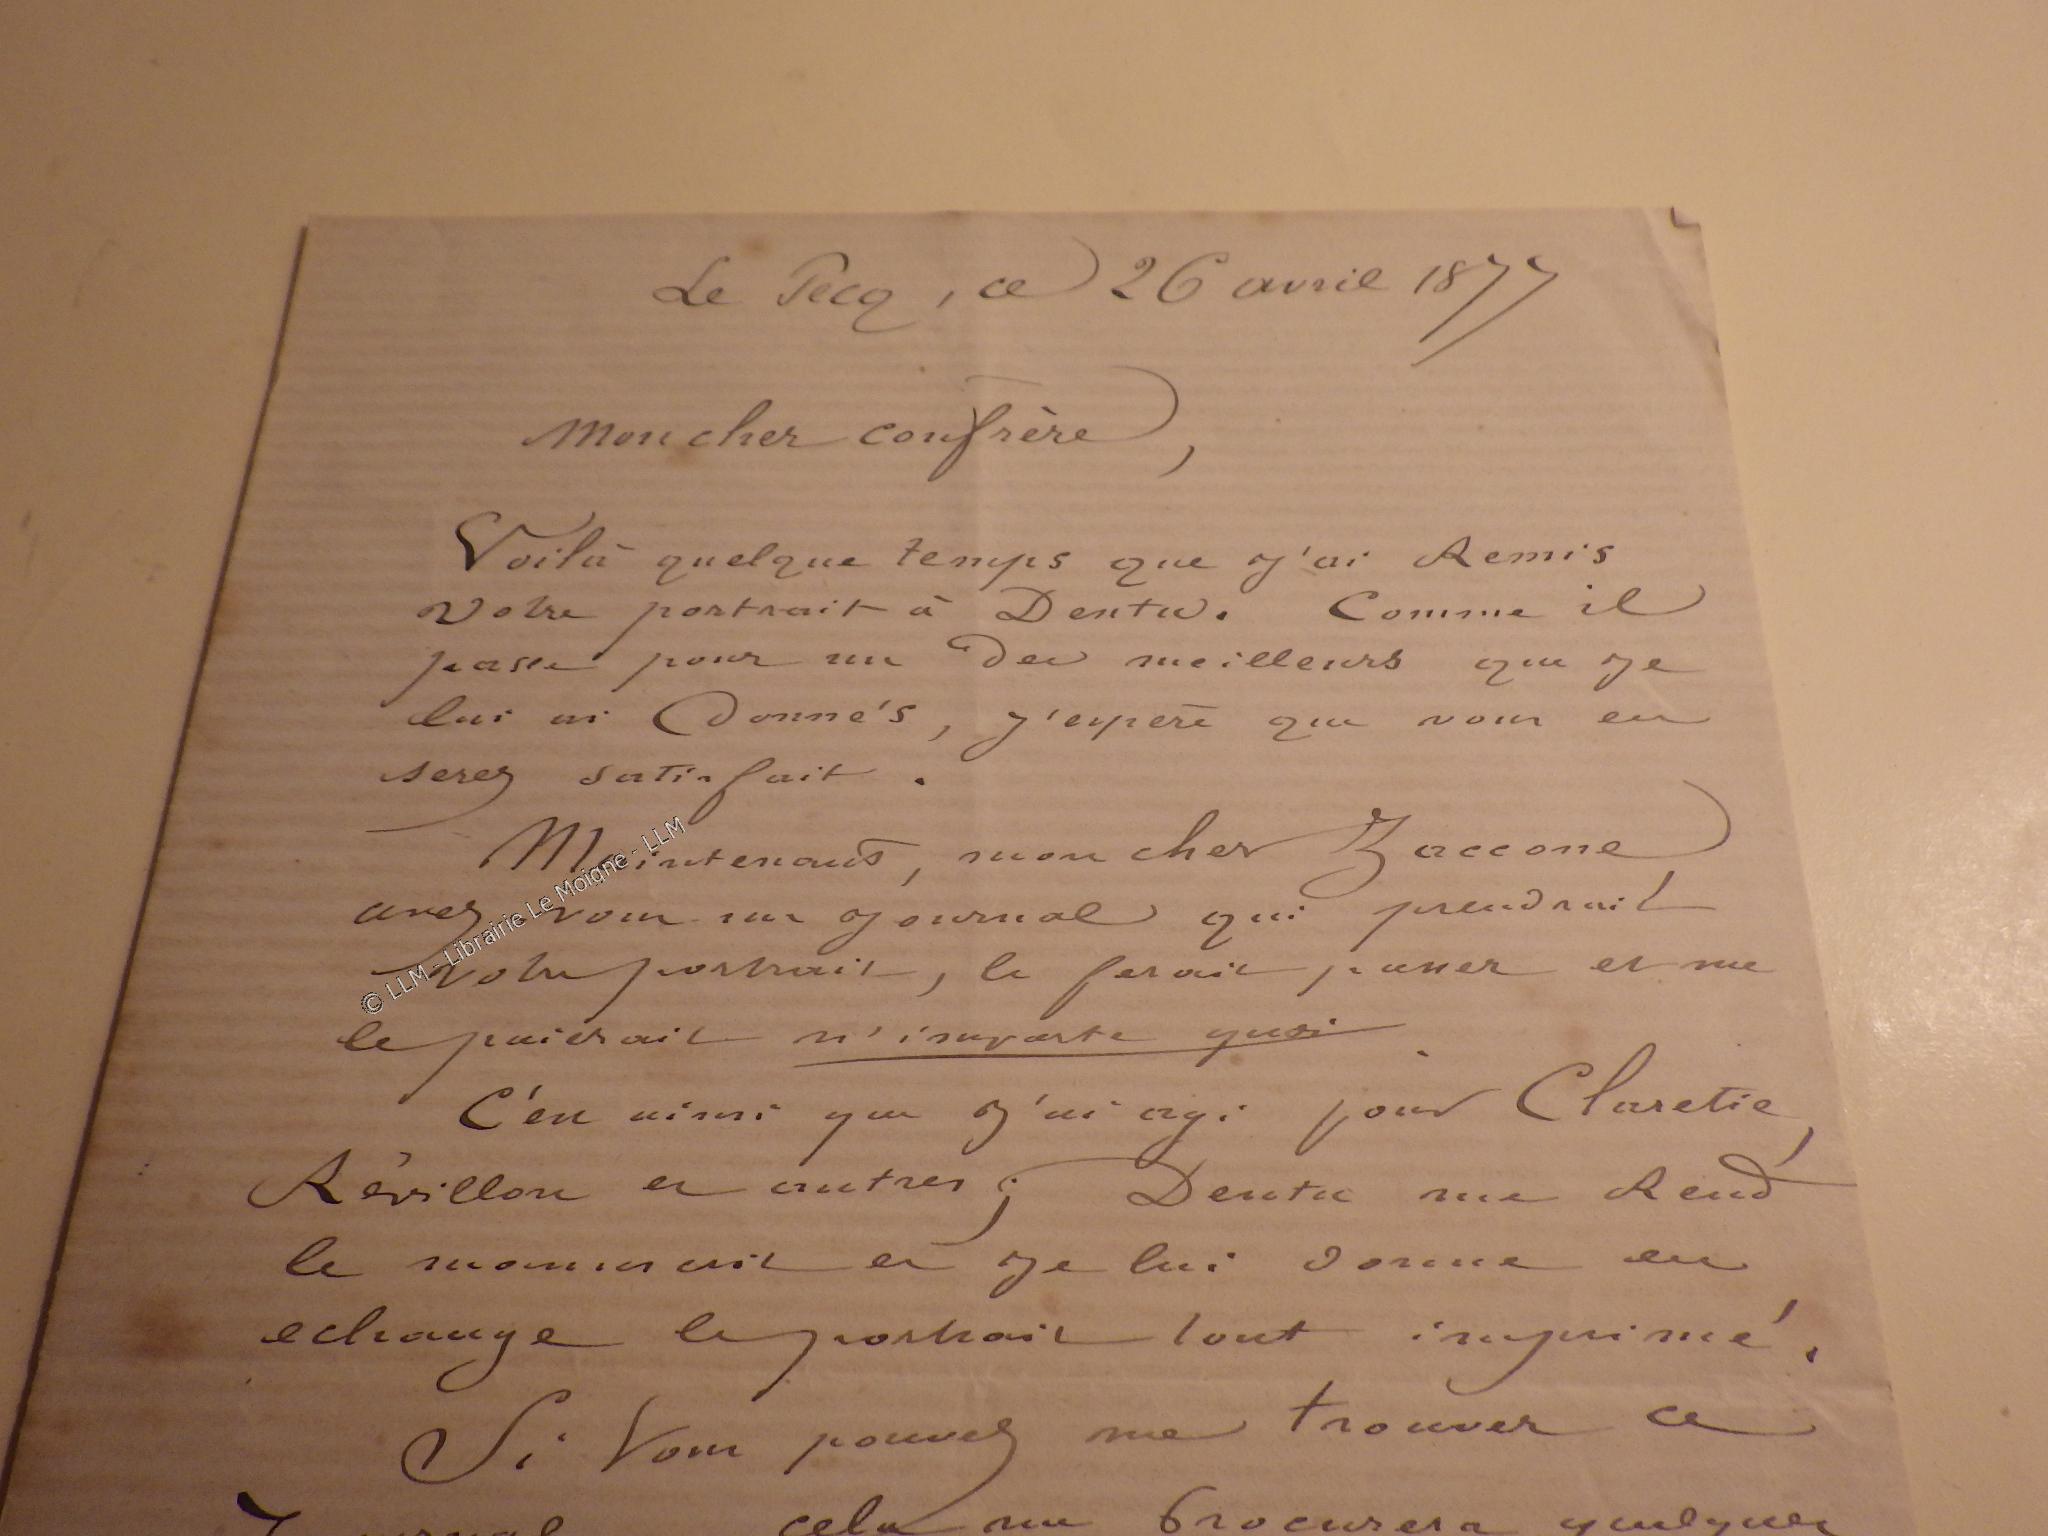 Le Pecq, ce 26 avril 1877
Mon cher confrère,
Voilà quelque temps que j'ai Remis
votre portrait à Dentu. Comme il
passe pour un des meilleurs que je
lui ai donnés, j'espère que vous en
serez satisfait.
Maintenant, mon cher Zaccone
avez-vous un journal qui prendrait
votre portrait, le ferait passer et me
le paierait n'importe quoi
C'est ainsi que j'ai agi pour Claretie,
Révillon et autres; Dentu me Rend
le manuscrit et je lui donne en
echange le portrait tout imprimé.
Si vous pouvez me trouver ce
journal cela me procurera quelques
© LLM - Librairie Le Moigne - LLM